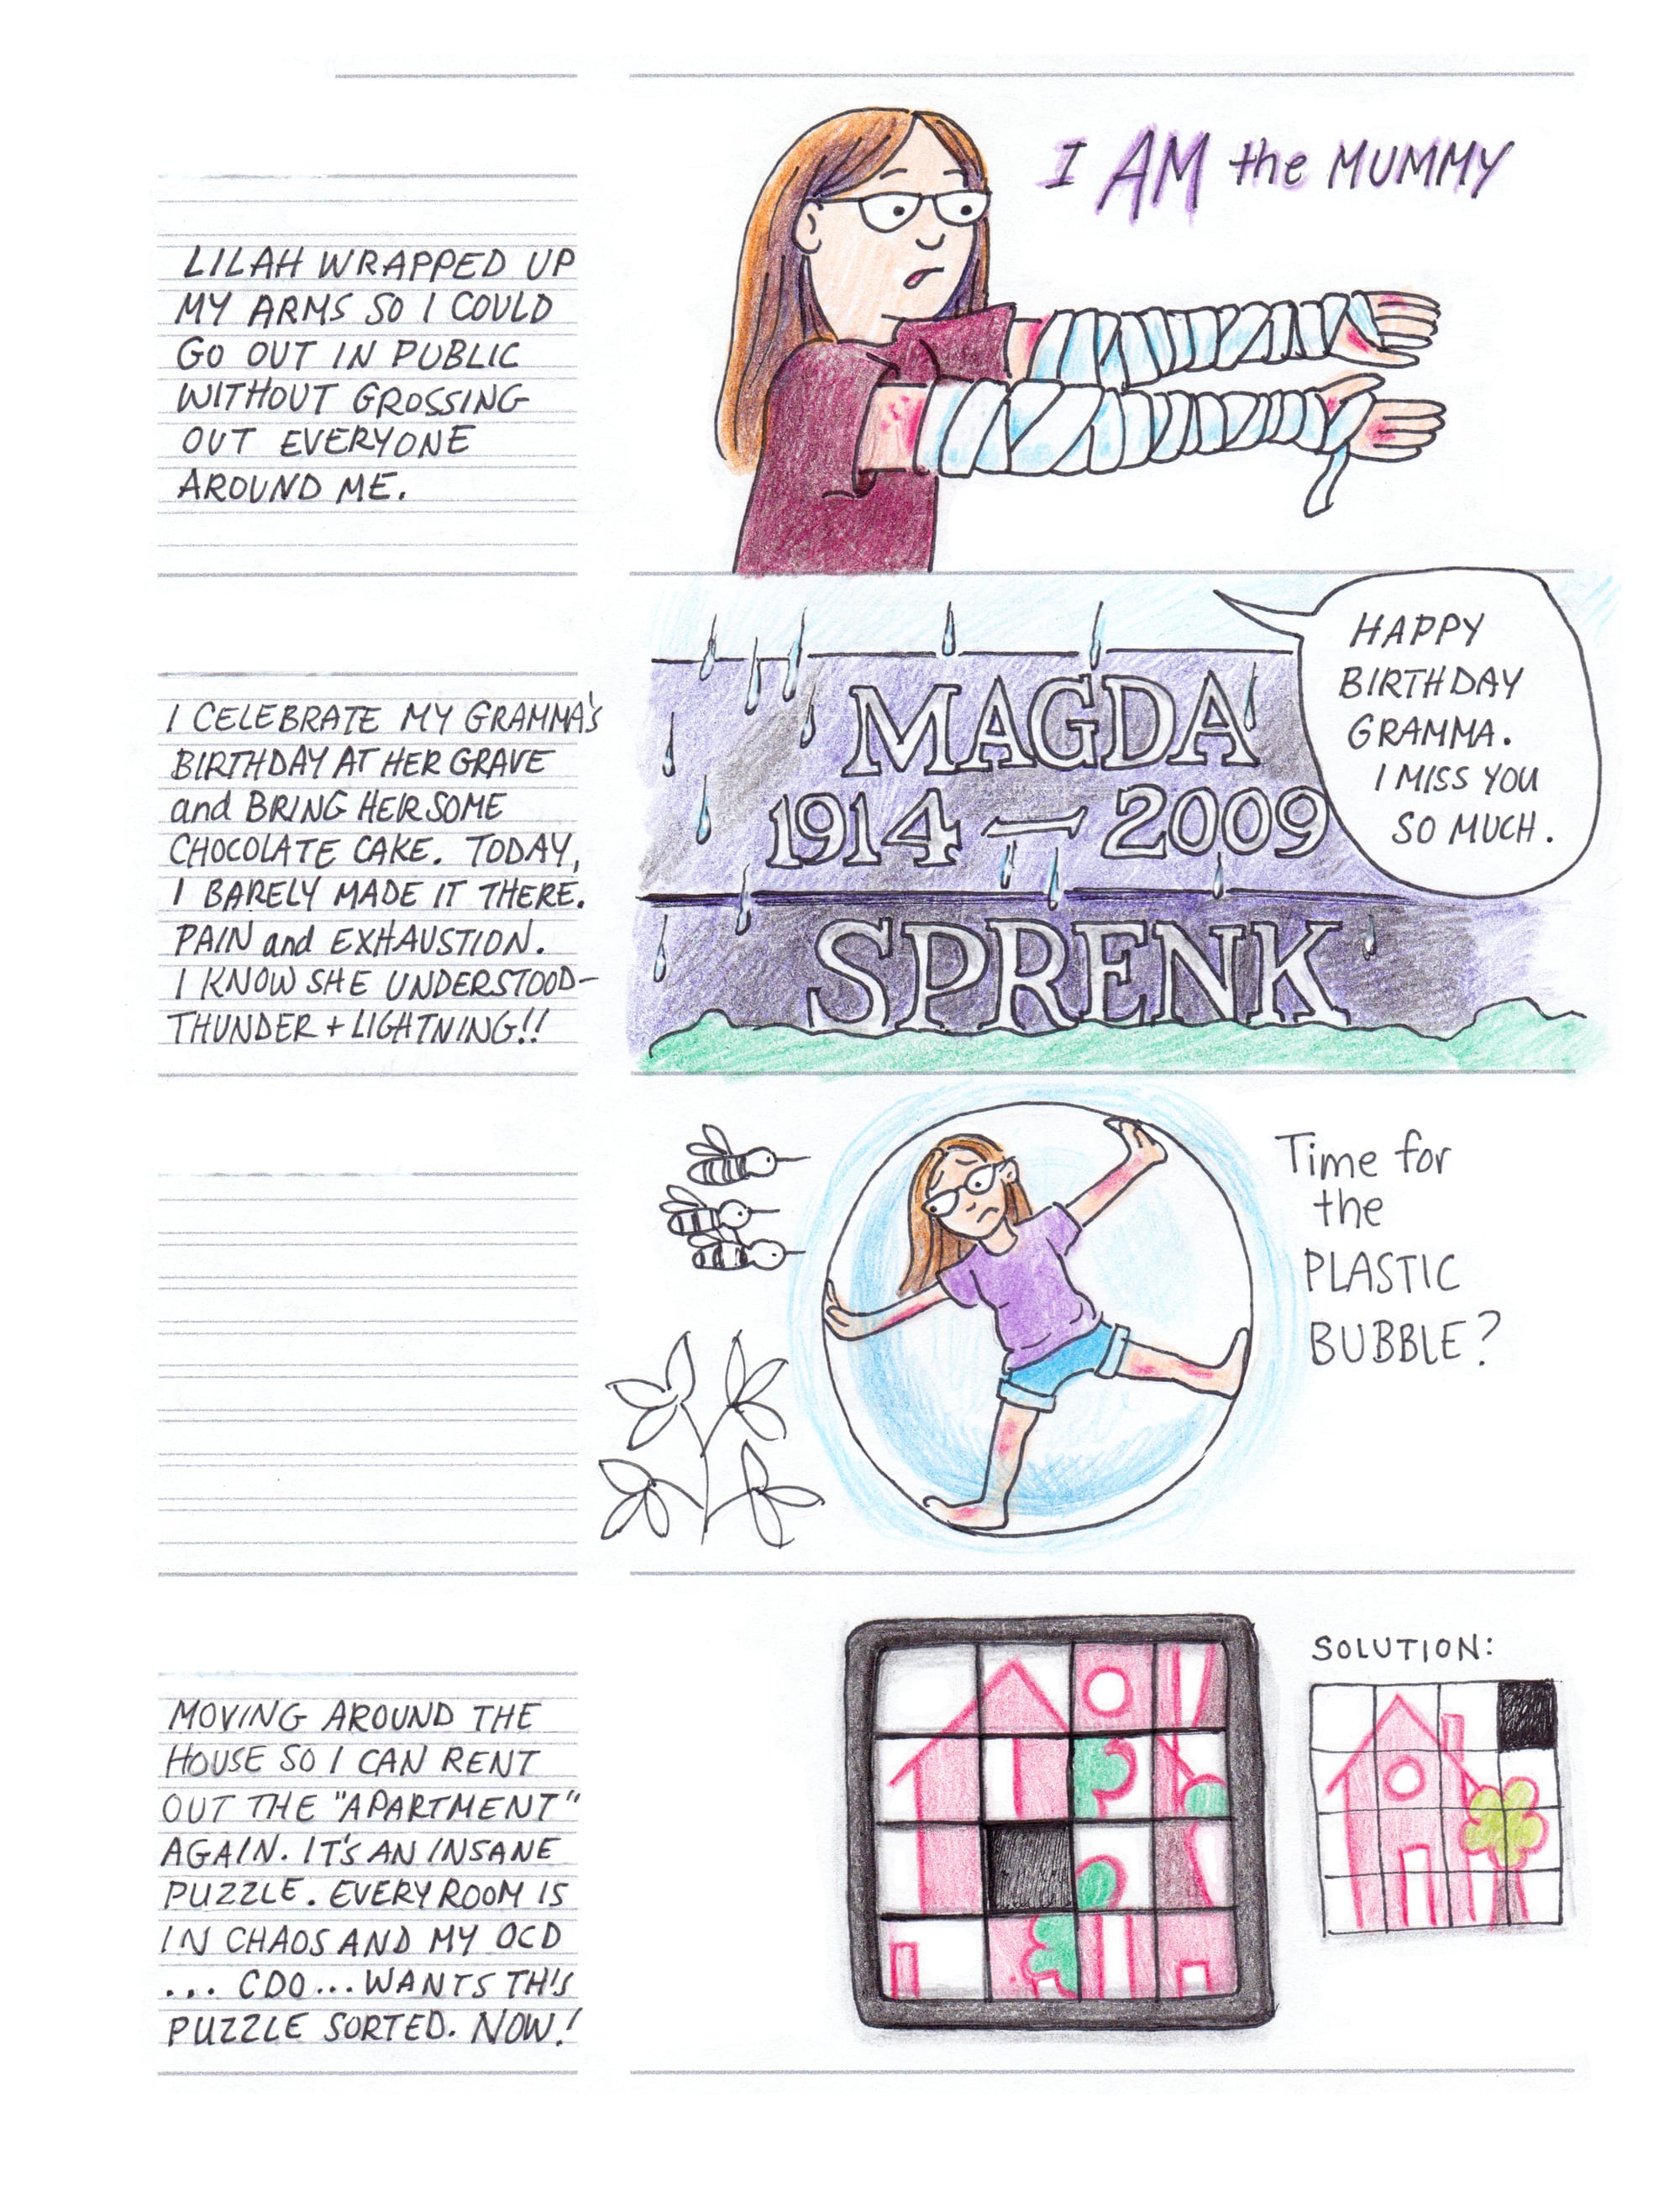 I AM the MUMMY
LILAH WRAPPED UP
MY ARMS SO I COULD
GO OUT IN PUBLIC
WITHOUT GROSSING
OUT EVERYONE
AROUND ME.
I CELEBRATE MY GRAMMA'S
BIRTHDAY AT HER GRAVE
and BRING HER SOME
CHOCOLATE CAKE. TODAY,
I BARELY MADE IT THERE.
PAIN and EXHAUSTION.
I KNOW SHE UNDERSTOOD-
THUNDER + LIGHTNING!!
MAGDA
1914 - 2009
SPRENK
HAPPY
BIRTHDAY
GRAMMA.
I MISS YOU
SO MUCH.
Time for
the
PLASTIC
BUBBLE?
MOVING AROUND THE
HOUSE SO I CAN RENT
OUT THE "APARTMENT"
AGAIN. IT'S AN INSANE
PUZZLE. EVERY ROOM IS
IN CHAOS AND MY OCD
... CDO... WANTS THIS
PUZZLE SORTED. NOW!
SOLUTION: